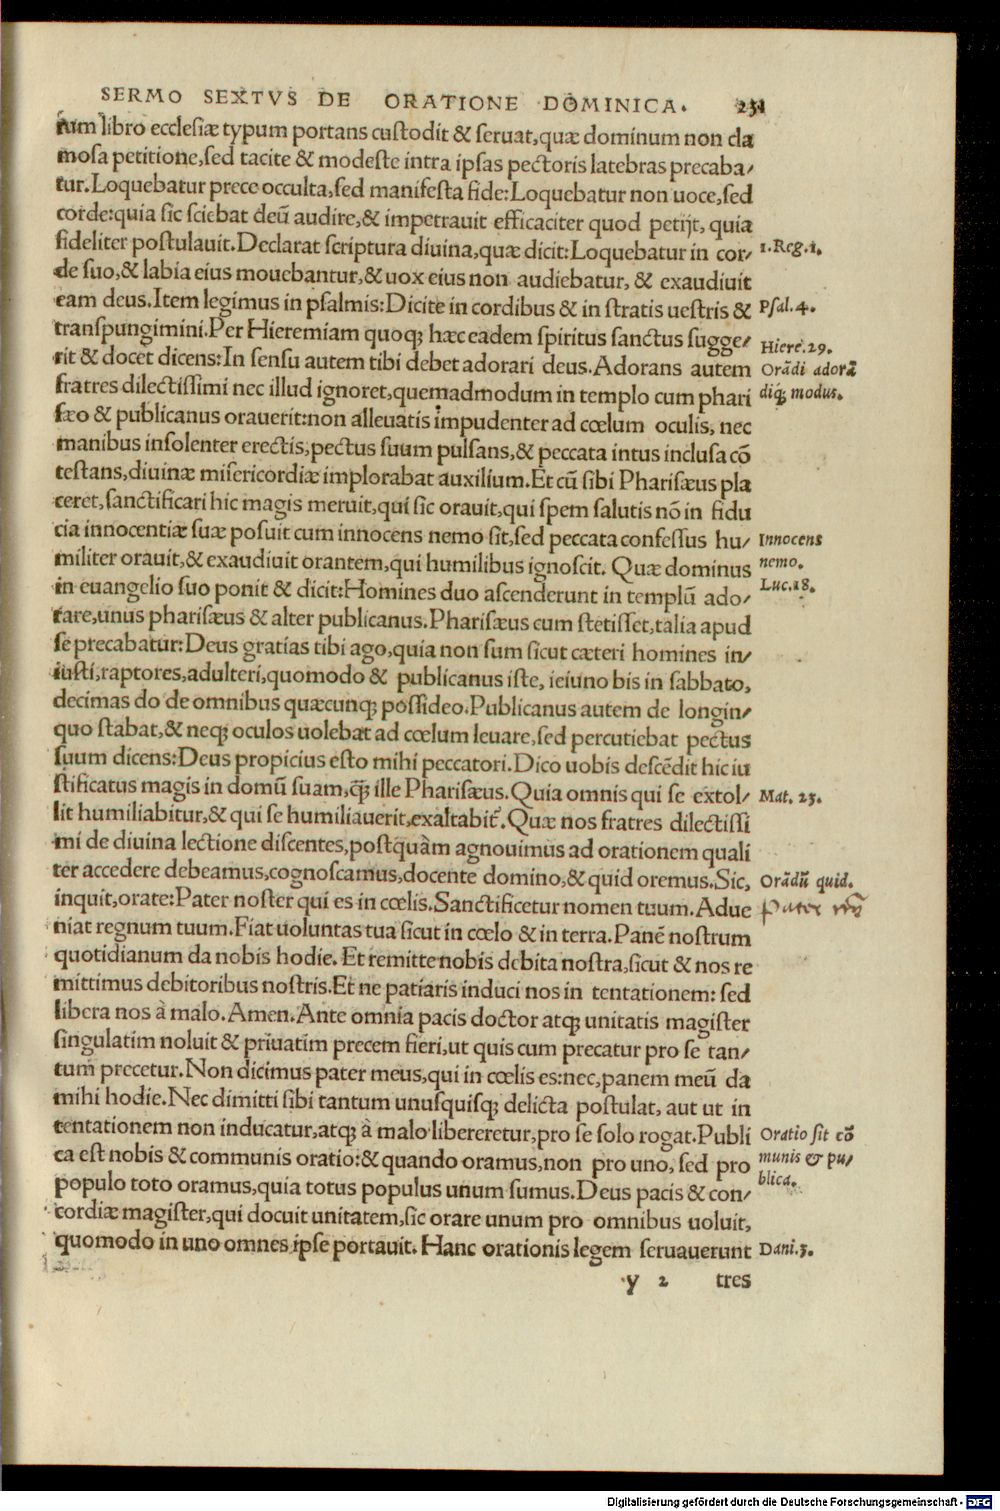 SERMO SEXTVS DE ORATIONE DOMINICA. 231
rum libro ecclesiæ typum portans custodit & seruat, quæ dominum non cla
mosa petitione, sed tacite & modeste intra ipsas pectoris latebras precaba/
tur. Loquebatur prece occulta, sed manifesta fide: Loquebatur non uoce, sed
corde: quia sic sciebat deū audire, & impetrauit efficaciter quod petijt, quia
fideliter postulauit. Declarat scriptura diuina, quæ dicit: Loquebatur in cor/
1. Reg. 1.
de suo, & labia eius mouebantur, & uox eius non audiebatur, & exaudiuit
eam deus. Item legimus in psalmis: Dicite in cordibus & in stratis uestris &
Psal. 4.
transpungimini. Per Hieremiam quoqꝫ hæc eadem spiritus sanctus sugge/
Hiere. 29.
rit & docet dicens: In sensu autem tibi debet adorari deus. Adorans autem
Orādi adorā
fratres dilectissimi nec illud ignoret, quemadmodum in templo cum phari
diqꝫ modus.
sæo & publicanus orauerit: non alleuatis impudenter ad cœlum oculis, nec
manibus insolenter erectis, pectus suum pulsans, & peccata intus inclusa cō
testans, diuinæ misericordiæ implorabat auxilium. Et cū sibi Pharisæus pla
ceret, sanctificari hic magis meruit, qui sic orauit, qui spem salutis nō in fidu
cia innocentiæ suæ posuit cum innocens nemo sit, sed peccata confessus hu/
Innocens
militer orauit, & exaudiuit orantem, qui humilibus ignoscit. Quæ dominus
nemo.
in euangelio suo ponit & dicit: Homines duo ascenderunt in templū ado/
Luc. 18.
rare, unus pharisæus & alter publicanus. Pharisæus cum stetisset, talia apud
se precabatur: Deus gratias tibi ago, quia non sum sicut cæteri homines in/
iusti, raptores, adulteri, quomodo & publicanus iste, ieiuno bis in sabbato,
decimas do de omnibus quæcunqꝫ possideo. Publicanus autem de longin/
quo stabat, & neqꝫ oculos uolebat ad cœlum leuare, sed percutiebat pectus
suum dicens: Deus propicius esto mihi peccatori. Dico uobis descēdit hic iu
stificatus magis in domū suam, q̄ꝫ ille Pharisæus. Quia omnis qui se extol/
Mat. 23.
lit humiliabitur, & qui se humiliauerit, exaltabit̃. Quæ nos fratres dilectissi
mi de diuina lectione discentes, postquàm agnouimus ad orationem quali
ter accedere debeamus, cognoscamus, docente domino, & quid oremus. Sic,
Orādū quid.
inquit, orate: Pater noster qui es in cœlis. Sanctificetur nomen tuum. Adue
Pater
niat regnum tuum. Fiat uoluntas tua sicut in cœlo & in terra. Panē nostrum
quotidianum da nobis hodie. Et remitte nobis debita nostra, sicut & nos re
mittimus debitoribus nostris. Et ne patiaris induci nos in tentationem: sed
libera nos à malo. Amen. Ante omnia pacis doctor atqꝫ unitatis magister
singulatim noluit & priuatim precem fieri, ut quis cum precatur pro se tan/
tum precetur. Non dicimus pater meus, qui in cœlis es: nec, panem meū da
mihi hodie. Nec dimitti sibi tantum unusquisqꝫ delicta postulat, aut ut in
tentationem non inducatur, atqꝫ à malo libereretur, pro se solo rogat. Publi
Oratio sit cō
ca est nobis & communis oratio: & quando oramus, non pro uno, sed pro
munis & pu/
populo toto oramus, quia totus populus unum sumus. Deus pacis & con/
blica.
cordiæ magister, qui docuit unitatem, sic orare unum pro omnibus uoluit,
quomodo in uno omnes ipse portauit. Hanc orationis legem seruauerunt
Dani. 3.
y 2 tres
Digitalisierung gefördert durch die Deutsche Forschungsgemeinschaft - DFG